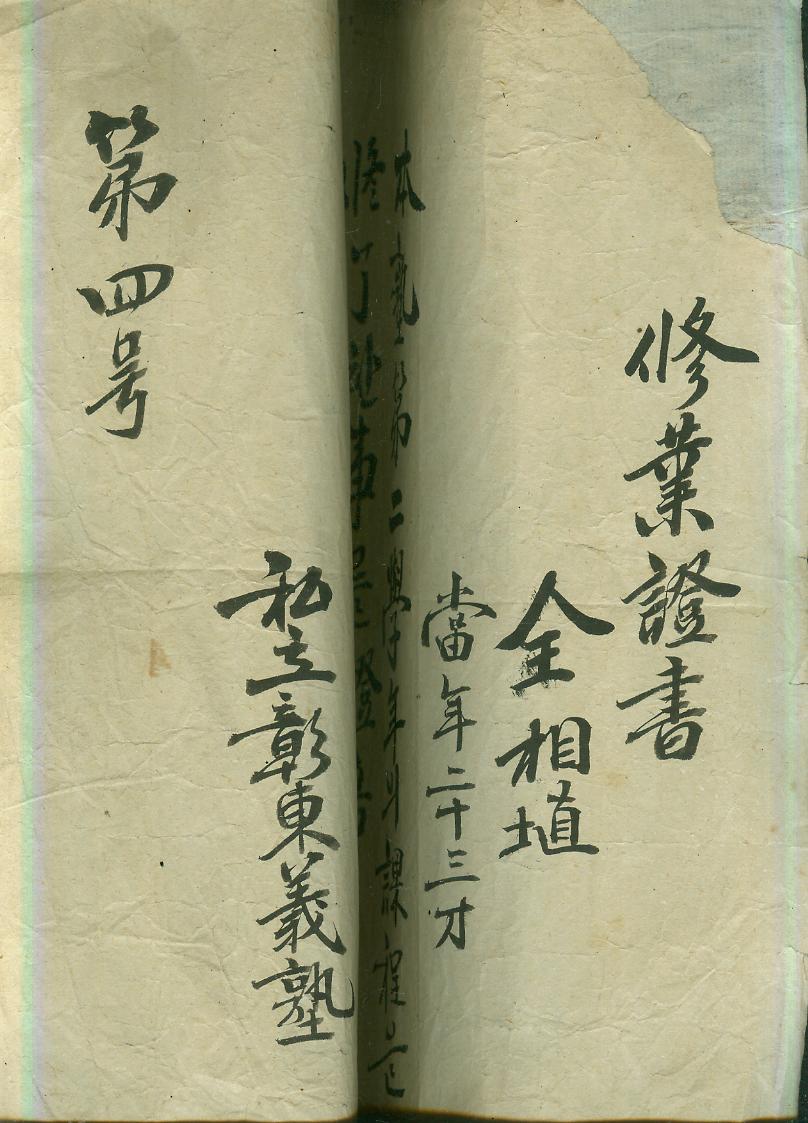 修業證書
金相埴
當年二十三才
本塾第二學年의課程을
修了 事 證
私立彰東義塾
第四号